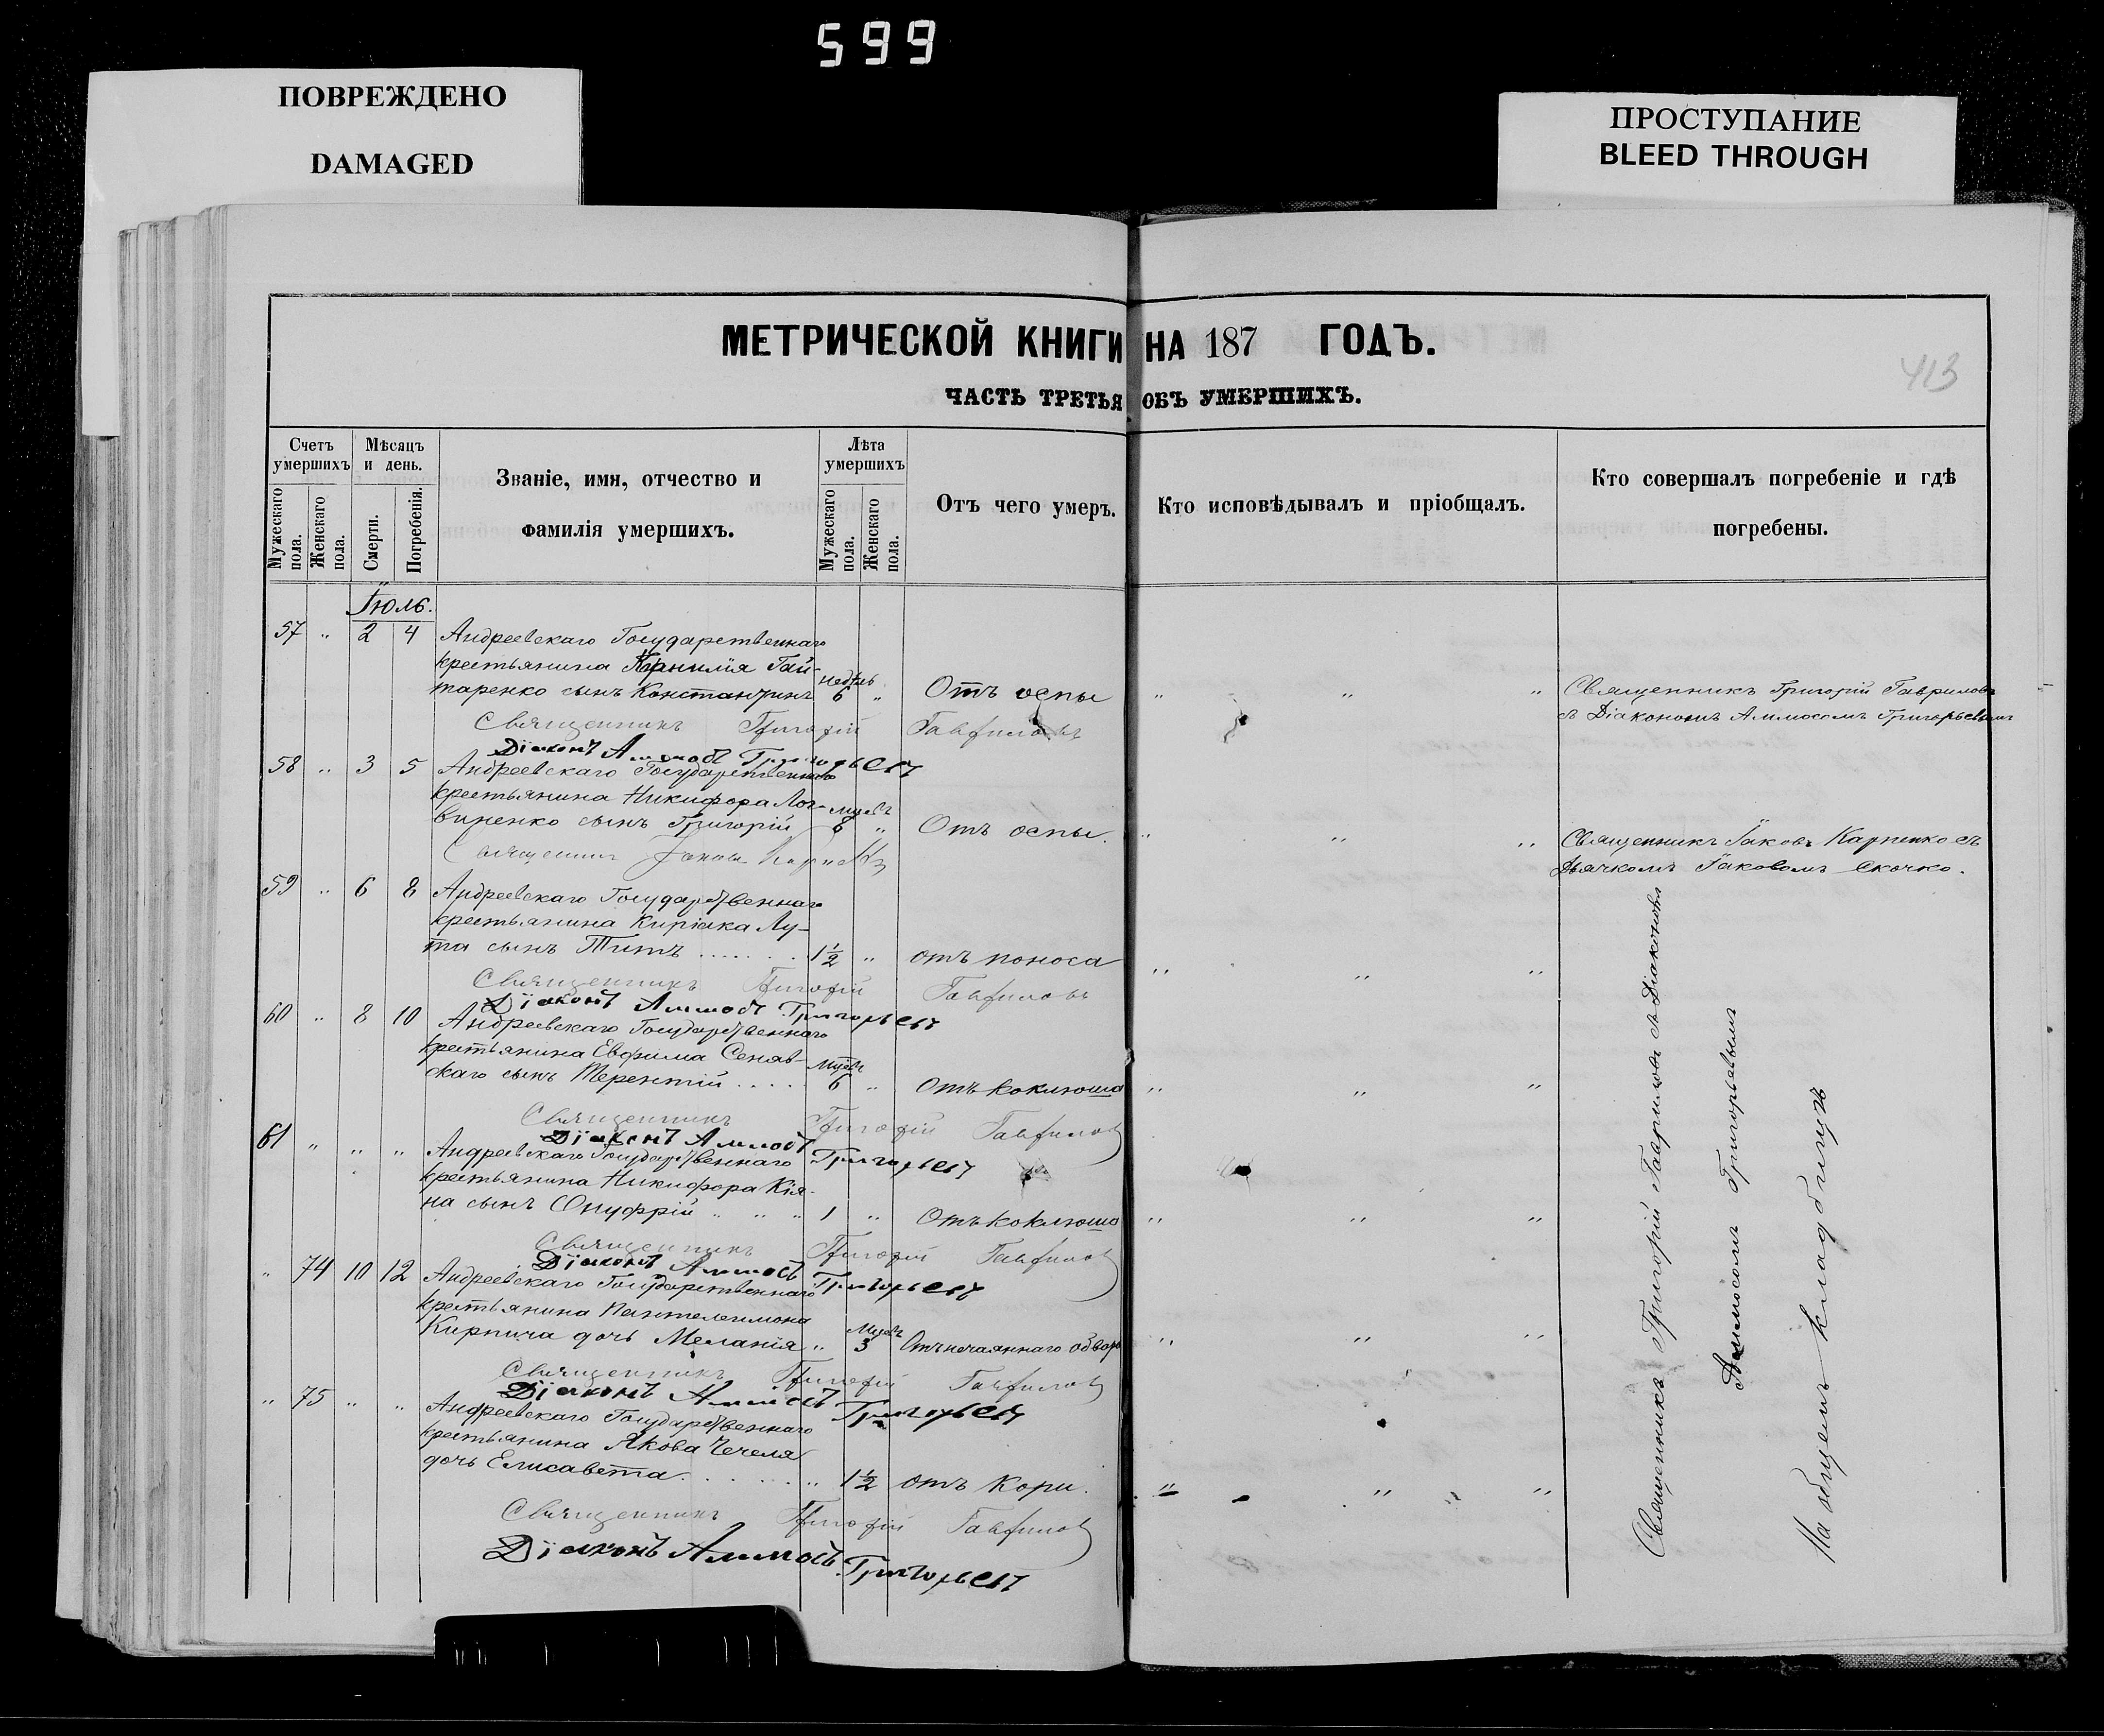 599
ПОВРЕЖДЕНО
DAMAGED
ПРОСТУПАНИЕ
BLEED THROUGH
МЕТРИЧЕСКОЙ КНИГИ НА 187 ГОДЪ.
413
ЧАСТЬ ТРЕТЬЯ ОБЪ УМЕРШИХЪ.
Счетъ умершихъ
Мужескаго пола.
Женскаго пола.
Мѣсяцъ и день.
Смерти.
Погребенія.
Званіе, имя, отчество и
фамилія умершихъ.
Лѣта умершихъ
Мужескаго пола.
Женскаго пола.
Отъ чего умеръ.
Кто исповѣдывалъ и пріобщалъ.
Кто совершалъ погребеніе и гдѣ
погребены.
Іюль.
57 " 2 4 Андреевскаго Государственнаго
крестьянина Корнилія Гай- недѣль
таренко сынъ Константинъ 6 " Отъ оспы " " " Священникъ Григорій Гавриловъ
съ Діакономъ Аммосомъ Григорьевымъ
Священникъ Григорій Гавриловъ
Діаконъ Аммосъ Григорьевъ
58 " 3 5 Андреевскаго Государственнаго
крестьянина Никифора Лог- мцевъ
виненко сынъ Григорій 8 " Отъ оспы. " " " Священникъ Іаковъ Карпенко съ
Дьячкомъ Іаковомъ Скочко.
Священникъ Іаковъ
59 " 6 8 Андреевскаго Государственнаго
крестьянина Киріака Лу-
та сынъ Титъ 1½ " отъ поноса " " "
Священникъ Григорій Гавриловъ
Діаконъ Аммосъ Григорьевъ
60 " 8 10 Андреевскаго Государственнаго
крестьянина Евфима Сеняв- мцевъ
скаго сынъ Терентій 6 " Отъ коклюша " " "
Священникъ Григорій Гавриловъ
Діаконъ Аммосъ Григорьевъ
61 " " " Андреевскаго Государственнаго
крестьянина Никифора Кія-
на сынъ Онуфрій " " " 1 " Отъ коклюша " " "
Священникъ Григорій Гавриловъ
Діаконъ Аммосъ Григорьевъ
" 74 10 12 Андреевскаго Государственнаго
крестьянина Пантелеимона Мцевъ
Кирпича дочь Меланія " 3 Отъ нечаяннаго " " "
Священникъ Григорій Гавриловъ
Діаконъ Аммосъ Григорьевъ
" 75 " " Андреевскаго Государственнаго
крестьянина Якова Чечеля
дочь Елисавета " 1½ отъ кори. " " "
Священникъ Григорій Гавриловъ
Діаконъ Аммосъ Григорьевъ
Священникъ Григорій Гавриловъ съ Діакономъ
Аммосомъ Григорьевымъ
На общемъ кладбищѣ